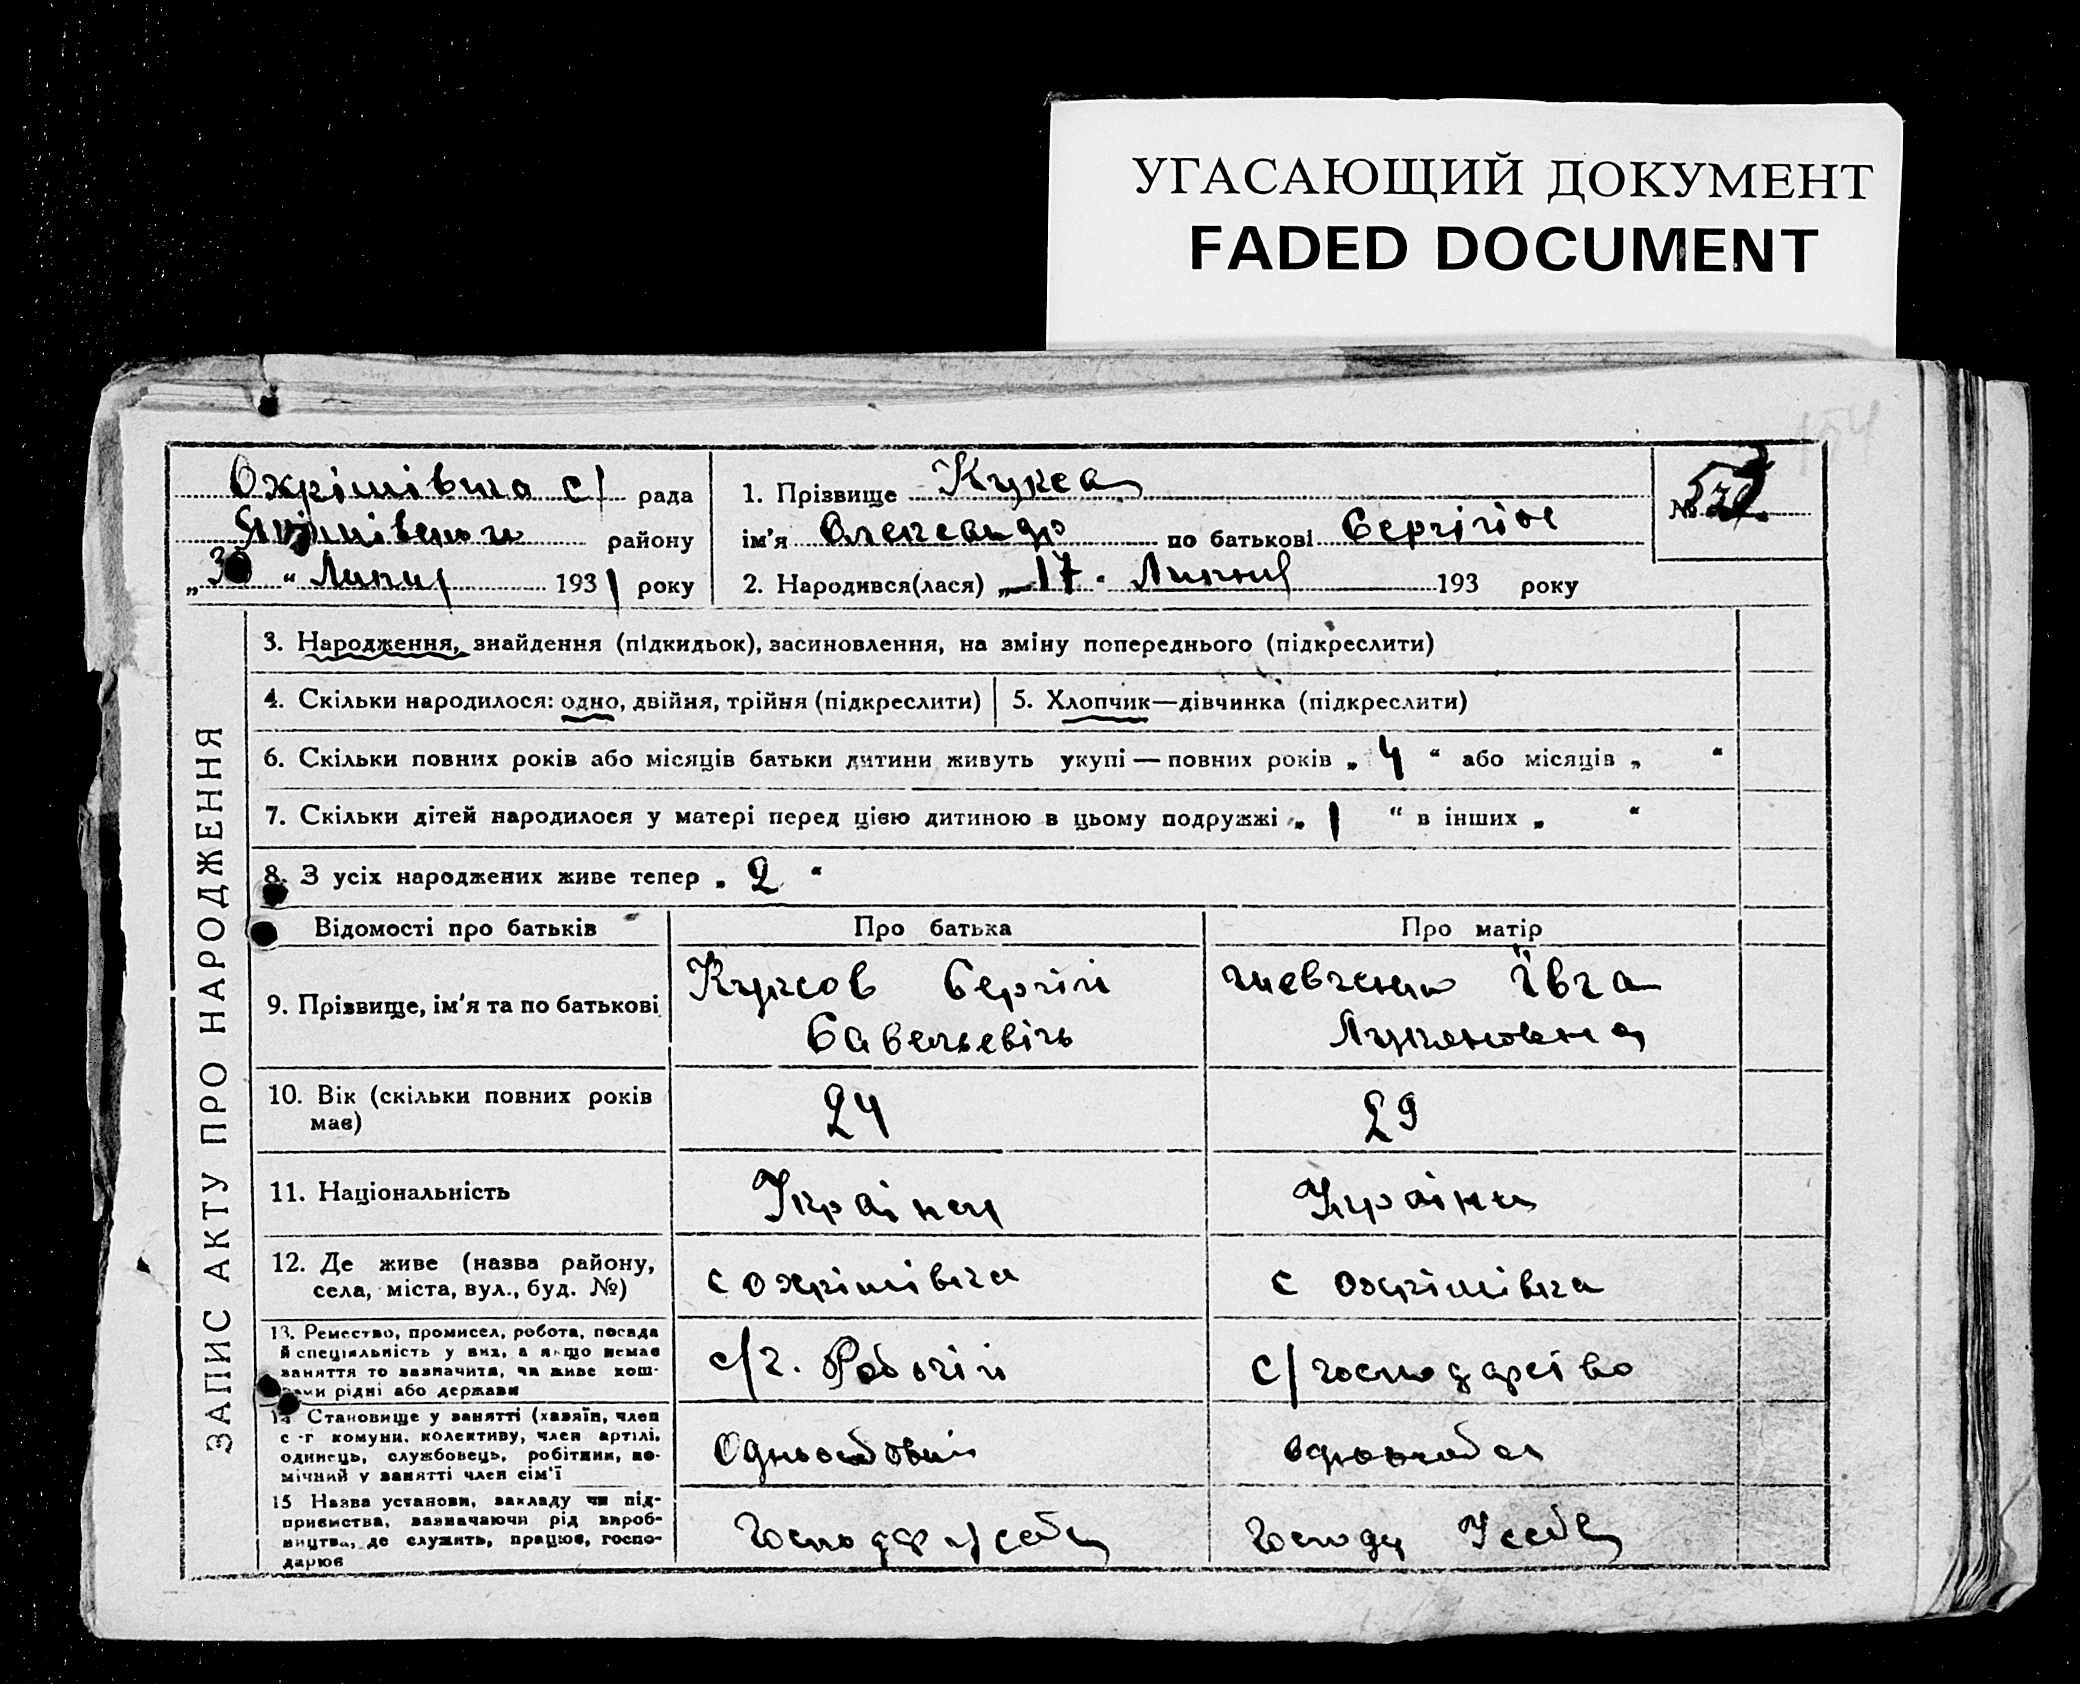 УГАСАЮЩИЙ ДОКУМЕНТ
FADED DOCUMENT
154
Охрімівка с/ рада
району
„30 “ Липня 1931 року
1. Прізвище Кукса
ім'я Олександр по батькові Сергіїв
2. Народився(лася) „17“ Липня 193 року
№
ЗАПИС АКТУ ПРО НАРОДЖЕННЯ
3. Народження, знайдення (підкидьок), засиновлення, на зміну попереднього (підкреслити)
4. Скільки народилося: одно, двійня, трійня (підкреслити)
5. Хлопчик—дівчинка (підкреслити)
6. Скільки повних років або місяців батьки дитини живуть укупі — повних років „ 4 “ або місяців „ “
7. Скільки дітей народилося у матері перед цією дитиною в цьому подружжі „ 1 “ в інших „ “
8. З усіх народжених живе тепер „ 2 “
Відомості про батьків
Про батька
Про матір
9. Прізвище, ім'я та по батькові
Куксов Сергій
Савельевічь
Шевченко Ївга
Лукяновна
10. Вік (скільки повних років
має)
24
29
11. Національність
Українец
Україн
12. Де живе (назва району,
села, міста, вул., буд. №)
с Охрімівка
с Охрімівка
13. Ремество, промисел, робота, посада
й спеціяльність у них, а якщо немає
заняття то зазначити, чи живе кош-
тами рідні або держави
с/г. Робочій
с/господарсіво
14 Становище у занятті (хазяїн, член
с-г комуни, колективу, член артілі,
одинець, службовець, робітник, по-
мічний у занятті член сім'ї
15 Назва установи, закладу чи під-
приємства, зазначаючи рід вироб-
ництва, де служить, працює, госпо-
дарює
Господар у себе
Господ У себе